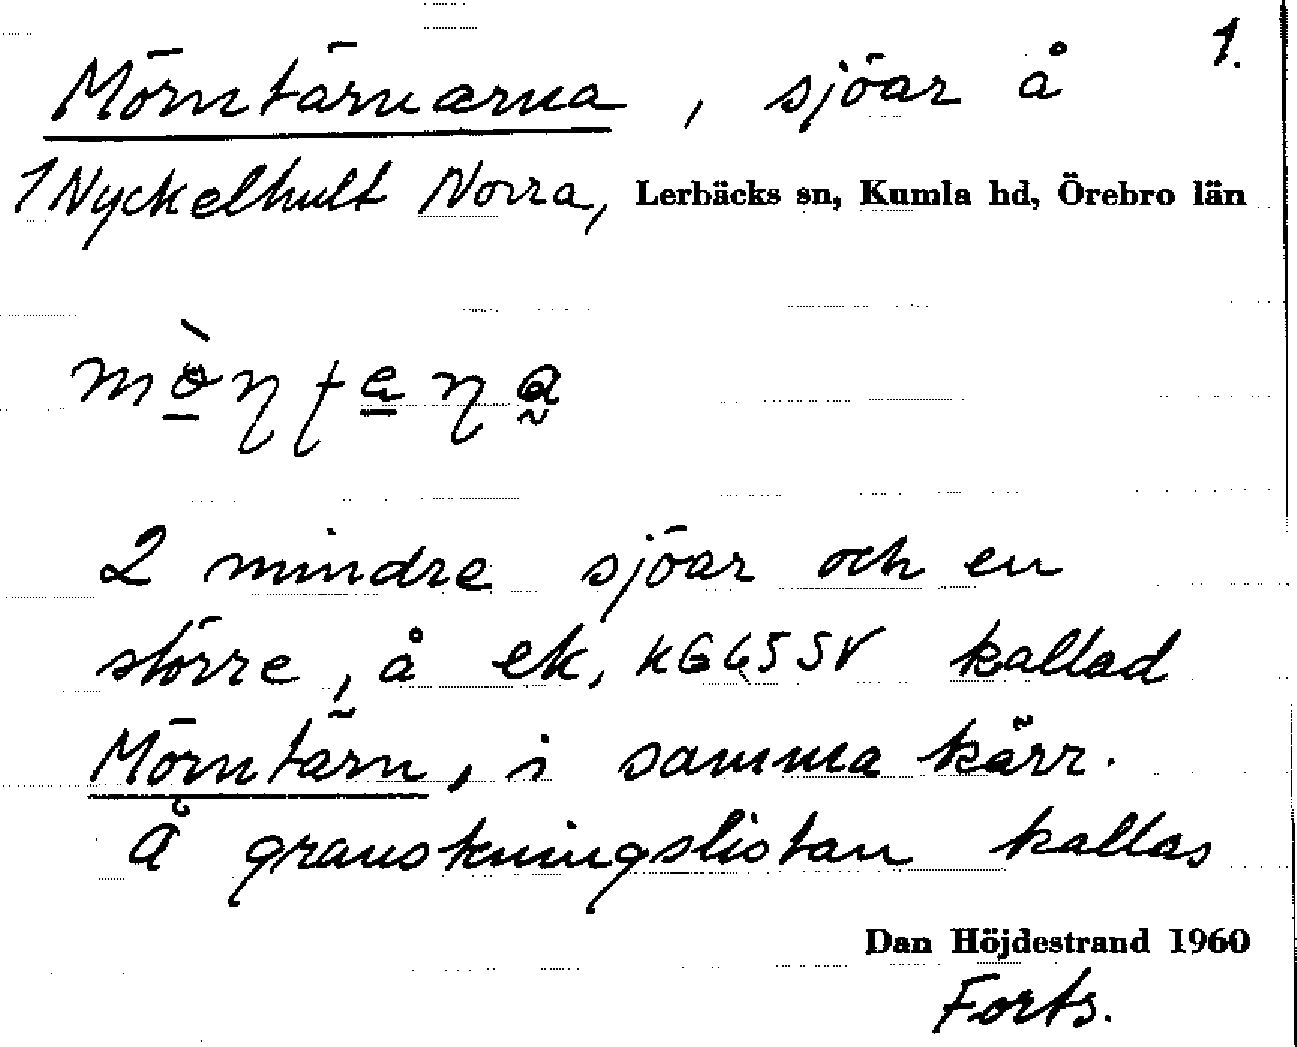 1.
Mörntärnarna, sjöar å
1 Nyckelhult Norra, Lerbäcks sn, Kumla hd, Örebro län
2 mindre sjöar och en
större, å ek, KGG5SV kallad
Mörntärn, i samma kärr.
Å granskningslistan kallas
Dan Höjdestrand 1960
Forts.